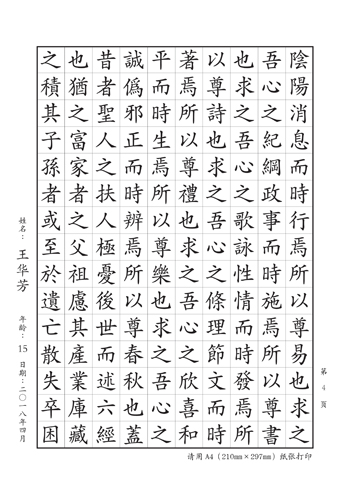 陰陽消息而時行焉所以尊易也求之
吾心之紀綱政事而時施焉所以尊書
也求之吾心之歌詠性情而時發焉所
以尊詩也求之吾心之條理節文而時
著焉所以尊禮也求之吾心之欣喜和
平而時生焉所以尊樂也求之吾心之
誠偽邪正而時辨焉所以尊春秋也蓋
昔者聖人之扶人極憂後世而述六經
也猶之富家者之父祖慮其產業庫藏
之積其子孫者或至於遺亡散失卒困
姓名：王华芳 年龄：15 日期：二〇一八年四月
第 4 页
请用A4（210mm×297mm）纸张打印